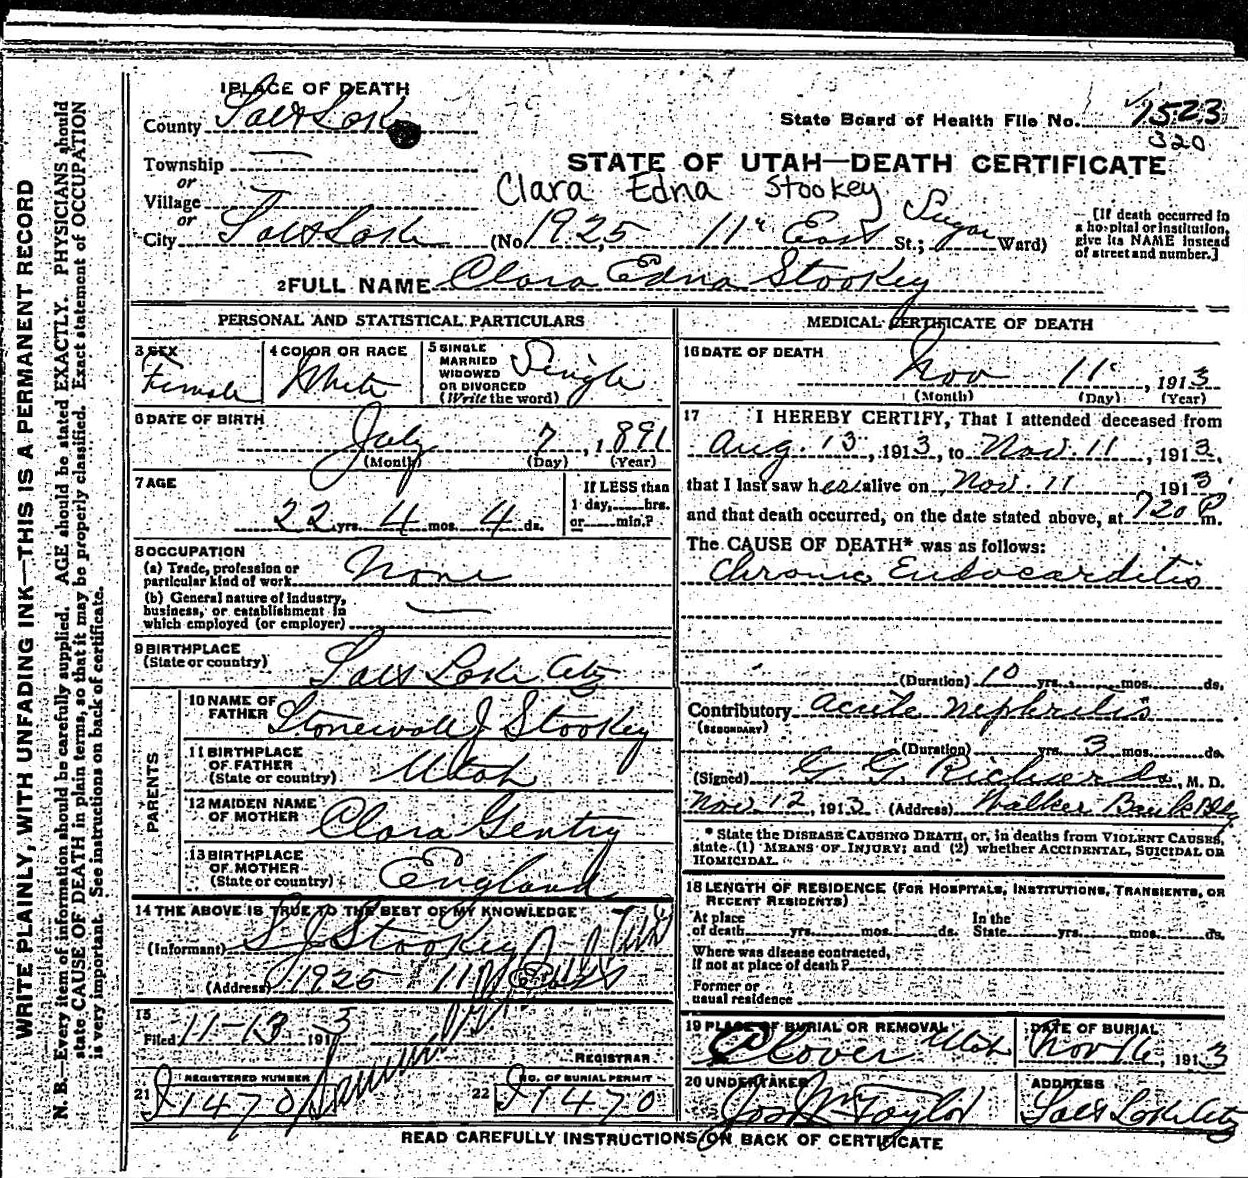 WRITE PLAINLY, WITH UNFADING INK—THIS IS A PERMANENT RECORD
N. B.—Every item of information should be carefully supplied. AGE should be stated EXACTLY. PHYSICIANS should
state CAUSE OF DEATH in plain terms, so that it may be properly classified. Exact statement of OCCUPATION
is very important. See instructions on back of certificate.
1 PLACE OF DEATH
County Salt Lake
State Board of Health File No. 1523
320
Township —
or
Village
or
City Salt Lake
STATE OF UTAH—DEATH CERTIFICATE
Clara Edna Stookey
(No. 1925 11" East St.; Sugar Ward)
[If death occurred in
a hospital or institution,
give its NAME instead
of street and number.]
2 FULL NAME Clara Edna Stookey
PERSONAL AND STATISTICAL PARTICULARS
3 SEX
Female
4 COLOR OR RACE
White
5 SINGLE
MARRIED
WIDOWED
OR DIVORCED
(Write the word)
Single
6 DATE OF BIRTH
July 7, 1891
(Month) (Day) (Year)
7 AGE
22 yrs. 4 mos. 4 ds.
If LESS than
1 day, hrs.
or min.?
8 OCCUPATION
(a) Trade, profession or
particular kind of work None
(b) General nature of industry,
business, or establishment in
which employed (or employer) —
9 BIRTHPLACE
(State or country) Salt Lake City
PARENTS
10 NAME OF
FATHER Stonewall J Stookey
11 BIRTHPLACE
OF FATHER
(State or country) Utah
12 MAIDEN NAME
OF MOTHER Clara Gentry
13 BIRTHPLACE
OF MOTHER
(State or country) England
14 THE ABOVE IS TRUE TO THE BEST OF MY KNOWLEDGE
(Informant) S J Stookey
(Address) 1925 11 East
15
Filed 11-13 1913
REGISTRAR
21 REGISTERED NUMBER
J1470
22 NO. OF BURIAL PERMIT
J1470
MEDICAL CERTIFICATE OF DEATH
16 DATE OF DEATH
Nov 11", 1913
(Month) (Day) (Year)
17 I HEREBY CERTIFY, That I attended deceased from
Aug. 13, 1913, to Nov. 11, 1913,
that I last saw her alive on Nov. 11 1913
and that death occurred, on the date stated above, at 720 P m.
The CAUSE OF DEATH* was as follows:
Chronic Endocarditis
(Duration) 10 yrs. mos. ds.
Contributory Acute Nephritis
(SECONDARY)
(Duration) yrs. 3 mos. ds.
(Signed) G. G. Richards, M. D.
Nov. 12, 1913 (Address) Walker Bank Bldg
* State the DISEASE CAUSING DEATH, or, in deaths from VIOLENT CAUSES,
state (1) MEANS OF INJURY; and (2) whether ACCIDENTAL, SUICIDAL OR
HOMICIDAL.
18 LENGTH OF RESIDENCE (FOR HOSPITALS, INSTITUTIONS, TRANSIENTS, OR
RECENT RESIDENTS)
At place
of death yrs. mos. ds.
In the
State yrs. mos. ds.
Where was disease contracted,
If not at place of death?
Former or
usual residence
19 PLACE OF BURIAL OR REMOVAL
Clover Utah
DATE OF BURIAL
Nov 16, 1913
20 UNDERTAKER
Jos Wm Taylor
ADDRESS
Salt Lake City
READ CAREFULLY INSTRUCTIONS ON BACK OF CERTIFICATE